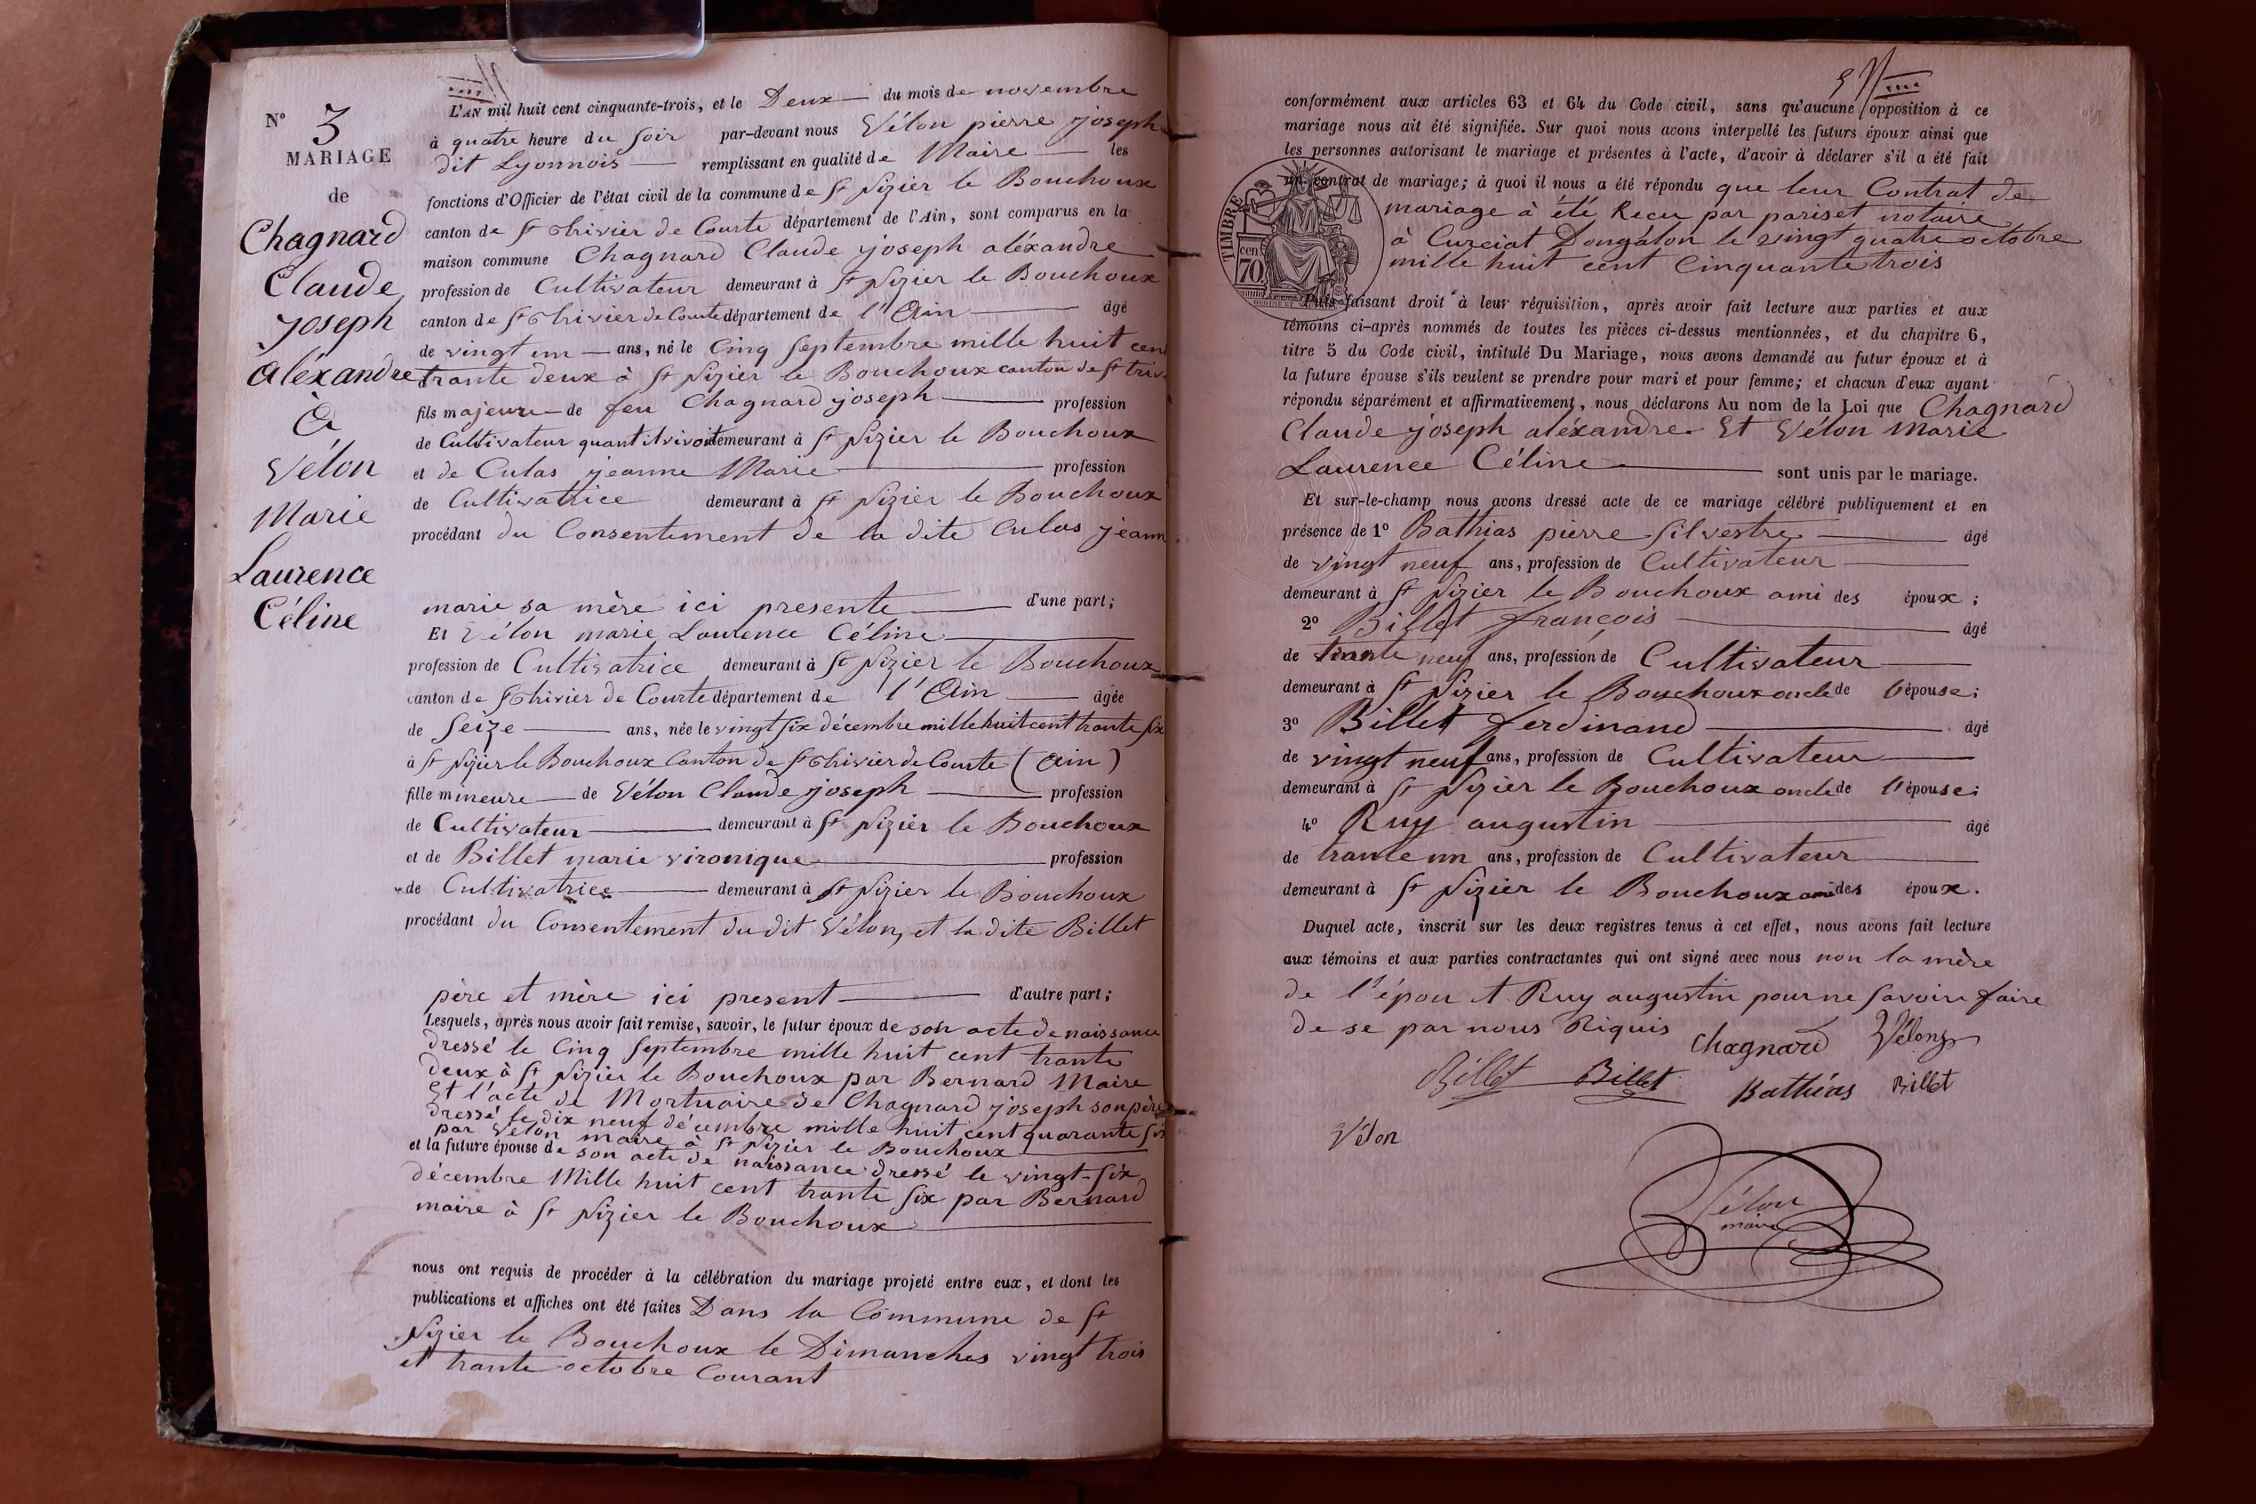 N° 3
MARIAGE
de
Chagnard
Claude
joseph
aléxandre
&
Vélon
Marie
Laurence
Céline
L'AN mil huit cent cinquante-trois, et le Deux du mois de novembre
à quatre heure du soir par-devant nous Vélon pierre joseph
dit Lyonnois remplissant en qualité de Maire les
fonctions d'Officier de l'état civil de la commune de St Nizier le Bouchoux
canton de St Trivier de Courte département de l'Ain, sont comparus en la
maison commune Chagnard Claude joseph aléxandre
profession de Cultivateur demeurant à St Nizier le Bouchoux
canton de St Trivier de Courte département de l'Ain âgé
de vingt un ans, né le cinq septembre mille huit cent
trante deux à St Nizier le Bouchoux canton de St triv
fils majeure de feu Chagnard joseph profession
de Cultivateur quant il vivoit demeurant à St Nizier le Bouchoux
et de Culas jeanne Marie profession
de Cultivatrice demeurant à St Nizier le Bouchoux
procédant du Consentement de la dite Culas jeann
marie sa mère ici presente d'une part;
Et Vélon marie Laurence Céline
profession de Cultivatrice demeurant à St Nizier le Bouchoux
canton de St Trivier de Courte département de l'Ain âgée
de Seize ans, née le vingt six décembre mille huit cent trante six
à St Nizier le Bouchoux Canton de St Trivier de Courte (Ain)
fille mineure de Vélon Claude joseph profession
de Cultivateur demeurant à St Nizier le Bouchoux
et de Billet marie vironique profession
de Cultivatrice demeurant à St Nizier le Bouchoux
procédant du Consentement du dit Vélon, et la dite Billet
père et mère ici present d'autre part;
Lesquels, après nous avoir fait remise, savoir, le futur époux de son acte de naissance
dressé le Cinq Septembre mille huit cent trante
deux à St Nizier le Bouchoux par Bernard Maire
Et l'acte de Mortuaire de Chagnard joseph son père
dressé le dix neuf décembre mille huit cent quarante six
par Vélon maire à St Nizier le Bouchoux
et la future épouse de son acte de naissance dressé le vingt-six
décembre Mille huit cent trante six par Bernard
maire à St Nizier le Bouchoux
nous ont requis de procéder à la célébration du mariage projeté entre eux, et dont les
publications et affiches ont été faites Dans la Commune de St
Nizier le Bouchoux le Dimanches vingt trois
et trante octobre Courant
conformément aux articles 63 et 64 du Code civil, sans qu'aucune opposition à ce
mariage nous ait été signifiée. Sur quoi nous avons interpellé les futurs époux ainsi que
les personnes autorisant le mariage et présentes à l'acte, d'avoir à déclarer s'il a été fait
un contrat de mariage; à quoi il nous a été répondu que leur Contrat de
mariage à été Recu par pariset notaire
à Curciat Dongalon le vingt quatre octobre
mille huit cent Cinquante trois
TIMBRE
cen
70
Puis faisant droit à leur réquisition, après avoir fait lecture aux parties et aux
témoins ci-après nommés de toutes les pièces ci-dessus mentionnées, et du chapitre 6,
titre 5 du Code civil, intitulé Du Mariage, nous avons demandé au futur époux et à
la future épouse s'ils veulent se prendre pour mari et pour femme; et chacun d'eux ayant
répondu séparément et affirmativement, nous déclarons Au nom de la Loi que Chagnard
Claude joseph aléxandre Et Vélon Marie
Laurence Céline sont unis par le mariage.
Et sur-le-champ nous avons dressé acte de ce mariage célébré publiquement et en
présence de 1° Bathias pierre silvestre âgé
de vingt neuf ans, profession de Cultivateur
demeurant à St Nizier le Bouchoux ami des époux;
2° Billet françois âgé
de trante neuf ans, profession de Cultivateur
demeurant à St Nizier le Bouchoux oncle de l'épouse;
3° Billet ferdinand âgé
de vingt neuf ans, profession de Cultivateur
demeurant à St Nizier le Bouchoux oncle de l'épouse;
4° Ruy augustin âgé
de trante un ans, profession de Cultivateur
demeurant à St Nizier le Bouchoux ami des époux.
Duquel acte, inscrit sur les deux registres tenus à cet effet, nous avons fait lecture
aux témoins et aux parties contractantes qui ont signé avec nous non la mère
de l'épou et Ruy augustin pour ne savoir faire
de se par nous Riquis Chagnard Vélon
Billet Billet Bathias Billet
Vélon
Vélon
maire